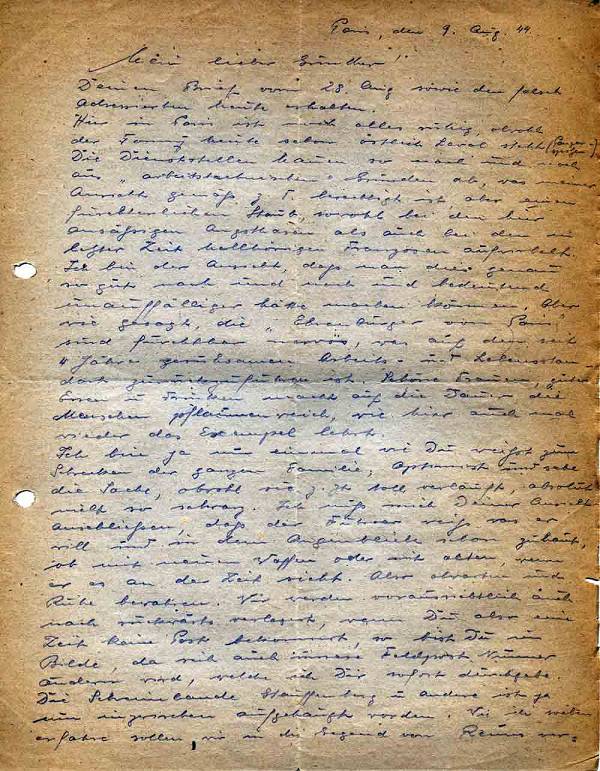 Paris, den 9. Aug. 44.
Mein lieber Günther!
Deinen Brief vom 28. Aug sowie den falsch
Adressierten heute erhalten.
Hier in Paris ist noch alles ruhig, obwohl
der Tommy heute schon östlich Laval steht (Panzer-
spitzen)
Die Dienststellen hauen so nach und nach
aus "arbeitstechnischen" Gründen ab, was meiner
Ansicht gemäß z. T. berechtigt ist aber einen
fürchterlichen Staub, sowohl bei den hier
ansässigen Angsthasen als auch bei den in
letzter Zeit hellhörigen Franzosen aufwirbelt.
Ich bin der Ansicht, dass man dies genau
so gut nach und nach und bedeutend
unauffälliger hätte machen können. Aber
wie gesagt, die "Ehrenbürger von Paris"
sind furchtbar nervös, was auf den seit
4 Jahre geruhsamen Arbeits- und Lebensstan
dart zurückzuführen ist. Schöne Frauen, gutes
Essen u Trinken macht auf die Dauer die
Menschen pflaumenweich, wie hier auch mal
wieder das Exempel lehrt.
Ich bin ja nun einmal wie Du weißt zum
Schrecken der ganzen Familie, Optimist und sehe
die Sache, obwohl sie z. Zt toll verläuft, absolut
nicht so schwarz. Ich muß mich Deiner Ansicht
anschließen, daß der Führer weiß was er
will und in dem Augenblicke schon zuhaut,
ob mit neuen Waffen oder mit alten, wenn
er es an der Zeit sieht. Also abwarten und
Ruhe bewahren. Wir werden voraussichtlich auch
nach rückwärts verlegt, wenn Du also eine
Zeit keine Post bekommst, so bist Du im
Bilde, da sich auch unsere Feldpost Nummer
ändern wird, welche ich Dir sofort durchgebe.
Die Schweinebande Stauffenberg u andere ist ja
nun inzwischen aufgehängt worden. Wie ich weiter
erfahre sollen wir in die Gegend von Reims ver-